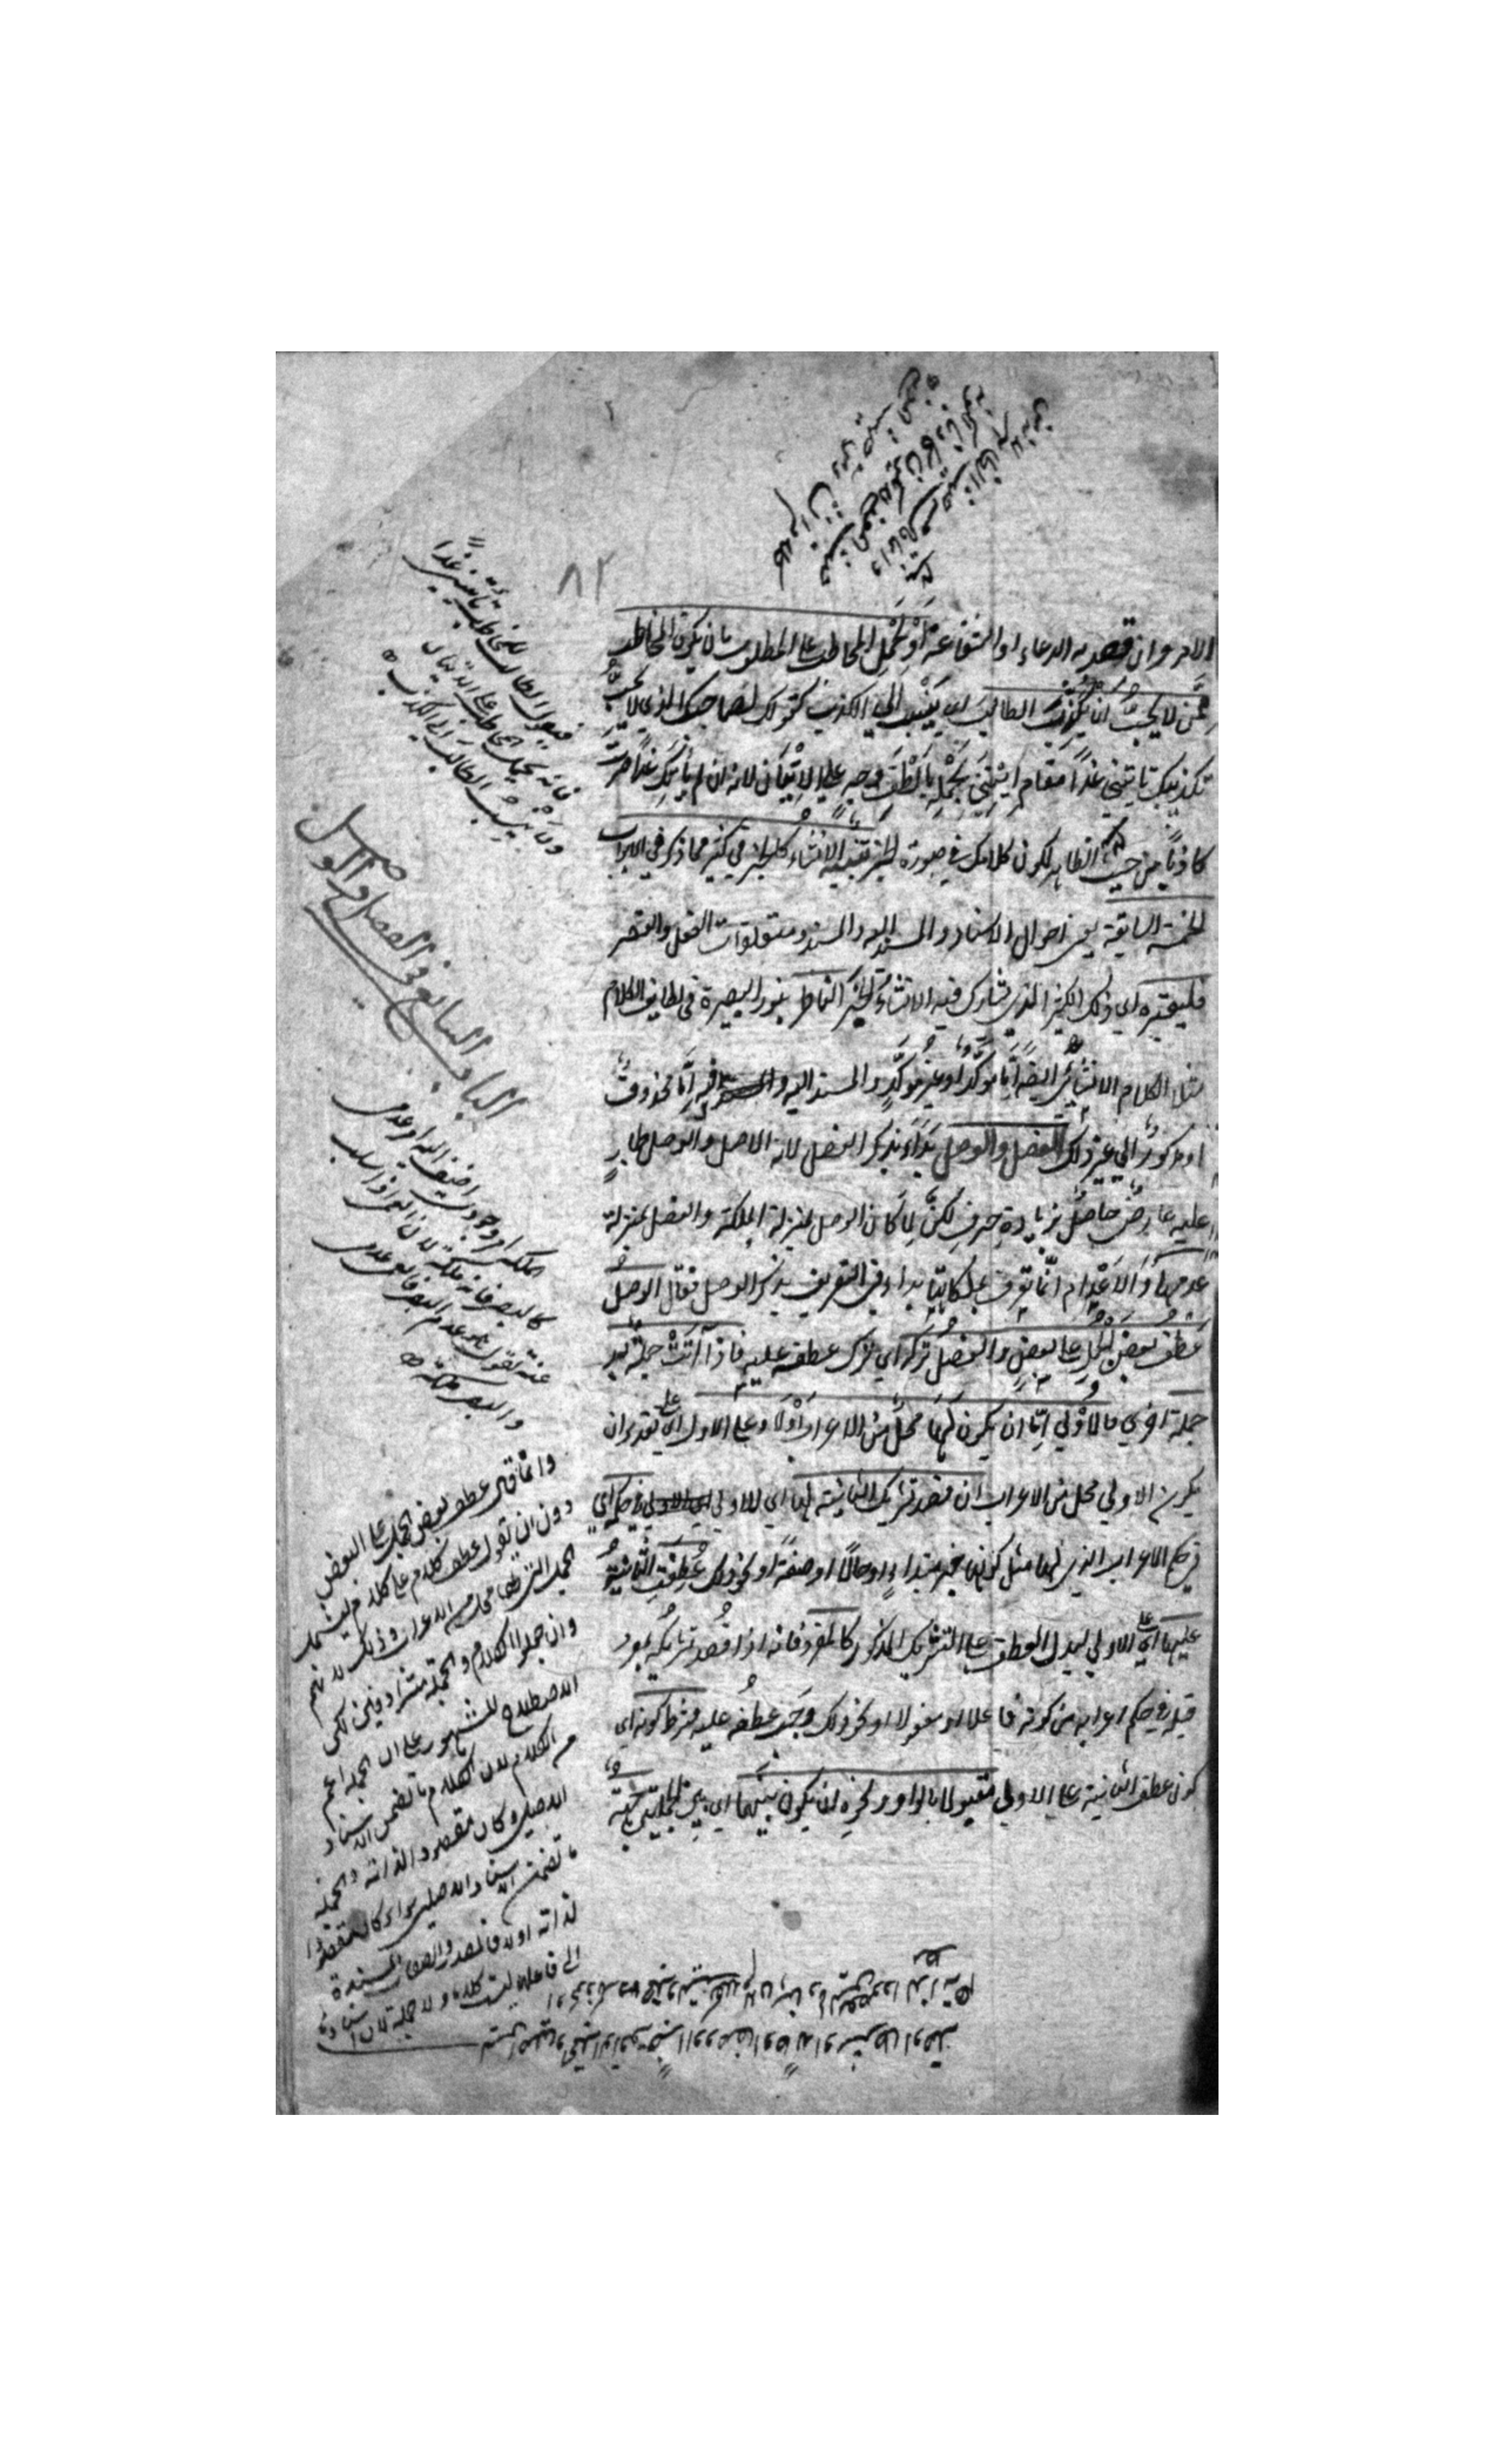 الامر وان قصد به الدعاء او الشفاعة او لحمل المخاطب على المطلوب بان يكون المخاطب
ممن لا يحب ان يكذب الطالب اي ينسب الى الكذب كقولك لصاحبك الذي لا يحب
تكذيبك تأتيني غدا مقام ائتني تحمله بالطف وجه على الاتيان لانه ان لم يأتك غدا صرت
كاذبا من حيث الظاهر لكون كلامك في صورة الخبر تنبيه الانشاء كالخبر في كثير مما ذكر في الابواب
الخمسة السابقة يعني احوال الاسناد والمسند اليه والمسند ومتعلقات الفعل والقصر
فليعتبره اي ذلك الكثير الذي يشارك فيه الانشاء الخبر الناظر بنور البصيرة في لطايف الكلام
مثلا الكلام الانشائي ايضا اما مؤكد او غير مؤكد والمسند اليه فيه اما محذوف
او مذكور الى غير ذلك الفصل والوصل بدأ بذكر الفصل لانه الاصل والوصل طار
عليه عارض حاصل بزيادة حرف لكن لما كان الوصل بمنزلة الملكة والفصل بمنزلة
عدمها والاعدام انما تعرف بملكاتها بداء في التعريف بذكر الوصل فقال الوصل
عطف بعض الجمل على بعض والفصل تركه اي ترك عطفه عليه فاذا اتت جملة بعد
جملة اخرى فالاولى اما ان يكون لها محل من الاعراب اولا وعلى الاول اي على تقدير ان
يكون الاولى محل من الاعراب ان قصد تشريك الثانية لها اي للاولى في حكمه اي
في حكم الاعراب الذي لها مثل كونها خبر مبتداء او حالا او صفة او نحو ذلك عطفت الثانية
عليها اي على الاولى ليدل العطف على التشريك المذكور كالمفرد فانه اذا قصد تشريكه لمفرد
قبله في حكم اعرابه من كونه فاعلا او مفعولا او نحو ذلك وجب عطفه عليه فشرط كونه اي
كون عطف الثانية على الاولى مقبولا بالواو ونحوه ان يكون بينهما اي بين الجملتين جهة
٨٢
فيقول الطالب للمخاطب تأتيني غدا
فانه يحمل المخاطب على الاتيان
ولا ينسب الطالب الى الكذب
الباب السابع في الفصل والوصل
الملكة امر وجودي اضيف اليه امر عدمي
كالبصر فانه ملكة لان العمى اذا سلب
عنه تقول هو عدم البصر فالعمى عدمي
والبصر ملكة
وانما قال عطف بعض الجمل على البعض
دون ان تقول عطف كلام على كلام ليشمل
الجمل التي لها محل من الاعراب وذلك لانهم
وان جعلوا الكلام والجملة مترادفين لكن
الاصطلاح المشهور على ان الجملة اعم
من الكلام لان الكلام ما تضمن الاسناد
الاصلي وكان مقصودا لذاته والجملة
ما تضمن الاسناد الاصلي سواء كان مقصودا
لذاته او لا فالمصدر والصفات المسندة
الى فاعلها ليست كلاما ولا جملة لان اسنادها